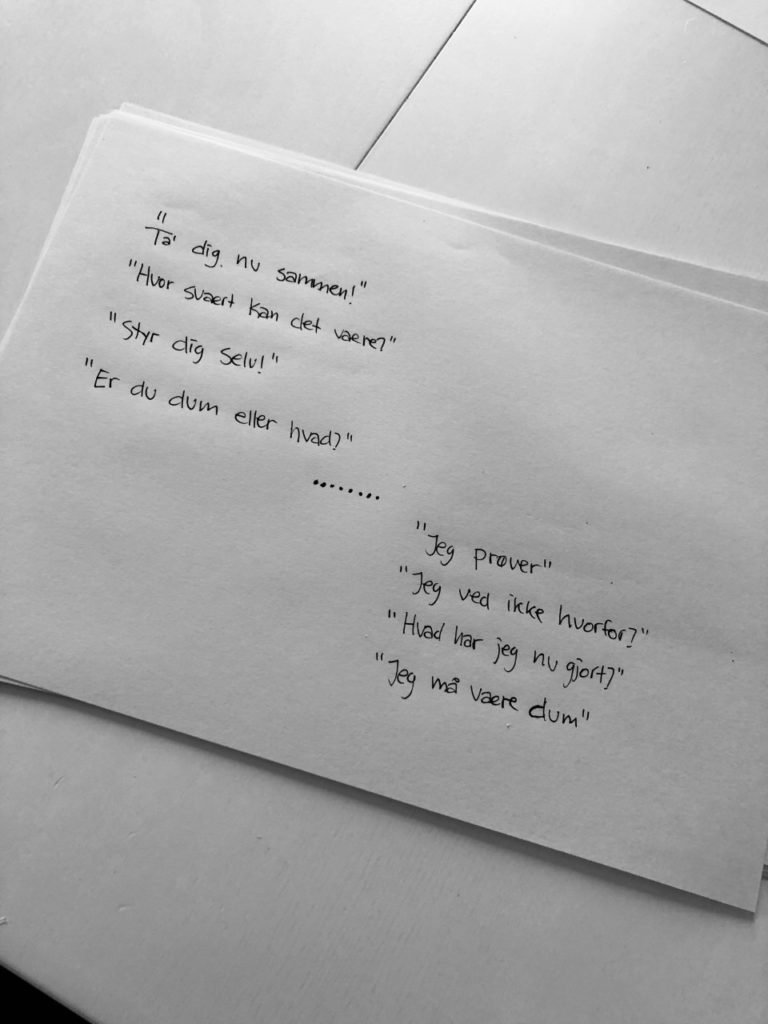 "Ta' dig nu sammen!"
"Hvor svært kan det være?"
"Styr dig selv!"
"Er du dum eller hvad?"
........
"Jeg prøver"
"Jeg ved ikke hvorfor?"
"Hvad har jeg nu gjort?"
"Jeg må være dum"